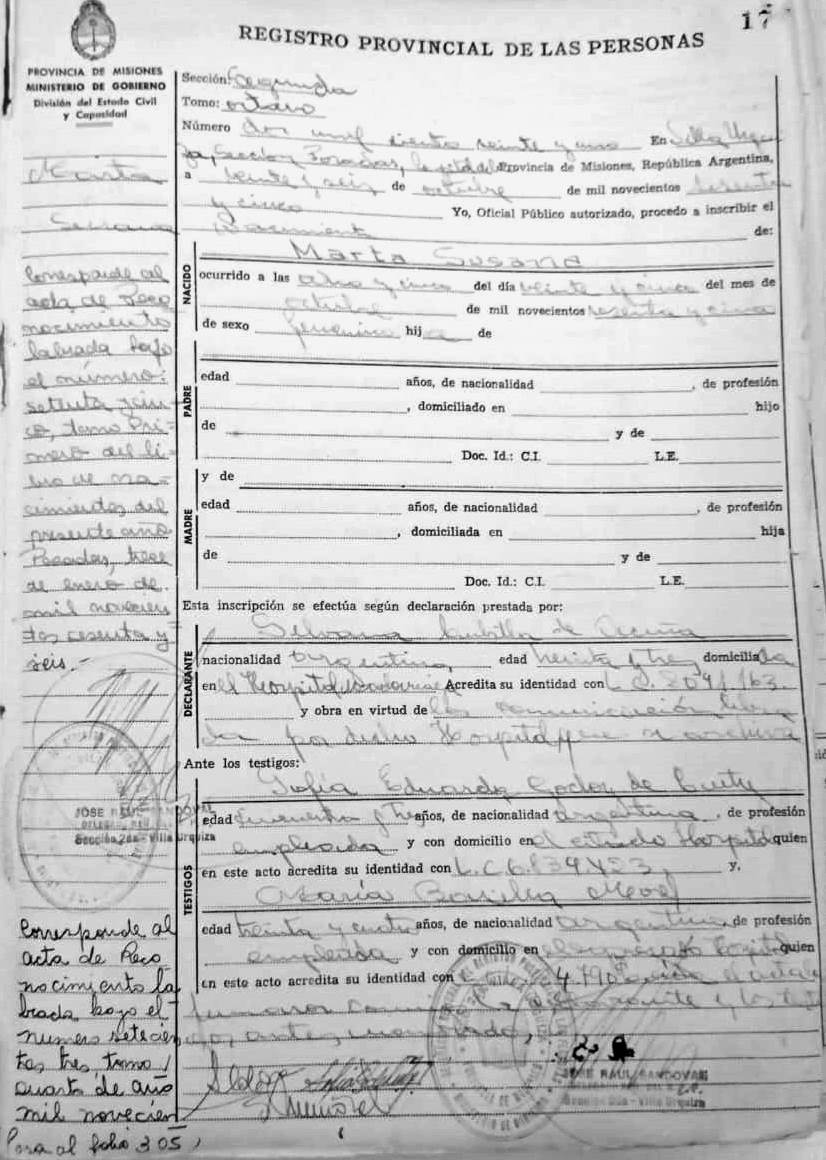 17
REGISTRO PROVINCIAL DE LAS PERSONAS
PROVINCIA DE MISIONES
MINISTERIO DE GOBIERNO
División del Estado Civil
y Capacidad
Sección: Segunda
Tomo: octavo
Número dos mil ciento veinte y uno En Villa Urqui
za, Sección Posadas, Provincia de Misiones, República Argentina,
a veinte y seis de octubre de mil novecientos sesenta
y cinco Yo, Oficial Público autorizado, procedo a inscribir el
nacimiento de:
NACIDO
Marta Susana
ocurrido a las y cinco del día veinte y cinco del mes de
octubre de mil novecientos sesenta y cinco
de sexo femenino hija de
PADRE
edad años, de nacionalidad , de profesión
, domiciliado en hijo
de y de
Doc. Id.: C.I. L.E.
MADRE
y de
edad años, de nacionalidad , de profesión
, domiciliada en hija
de y de
Doc. Id.: C.I. L.E.
Esta inscripción se efectúa según declaración prestada por:
DECLARANTE
de Acuña
nacionalidad argentina, edad treinta y tres domiciliada
en el Hospital Acredita su identidad con L.C.
y obra en virtud de la comunicación
da por dicho Hospital que se archiva
Ante los testigos:
TESTIGOS
Sofía Eduarda Godoy de
edad cincuenta y tres años, de nacionalidad argentina, de profesión
empleada y con domicilio en el citado Hospital quien
en este acto acredita su identidad con L.C. 6.839.423, y,
María
edad treinta y cuatro años, de nacionalidad argentina, de profesión
empleada y con domicilio en el Hospital quien
en este acto acredita su identidad con
Marta
Susana
Corresponde al
acta de Reco
nocimiento
labrada bajo
el número:
setenta y cin
co, tomo Pri-
mero del li-
bro de na-
cimientos del
presente año
Posadas, trece
de enero de
mil novecien
tos sesenta y
seis.-
JOSE RAUL SANDOVAL
Sección 2da - Villa Urquiza
Corresponde al
acta de Reco
nocimiento la
brada bajo el
numero setecien
tos tres, tomo
cuarto de año
mil novecien
Pasa al folio 305
JOSE RAUL SANDOVAL
Sección 2da - Villa Urquiza